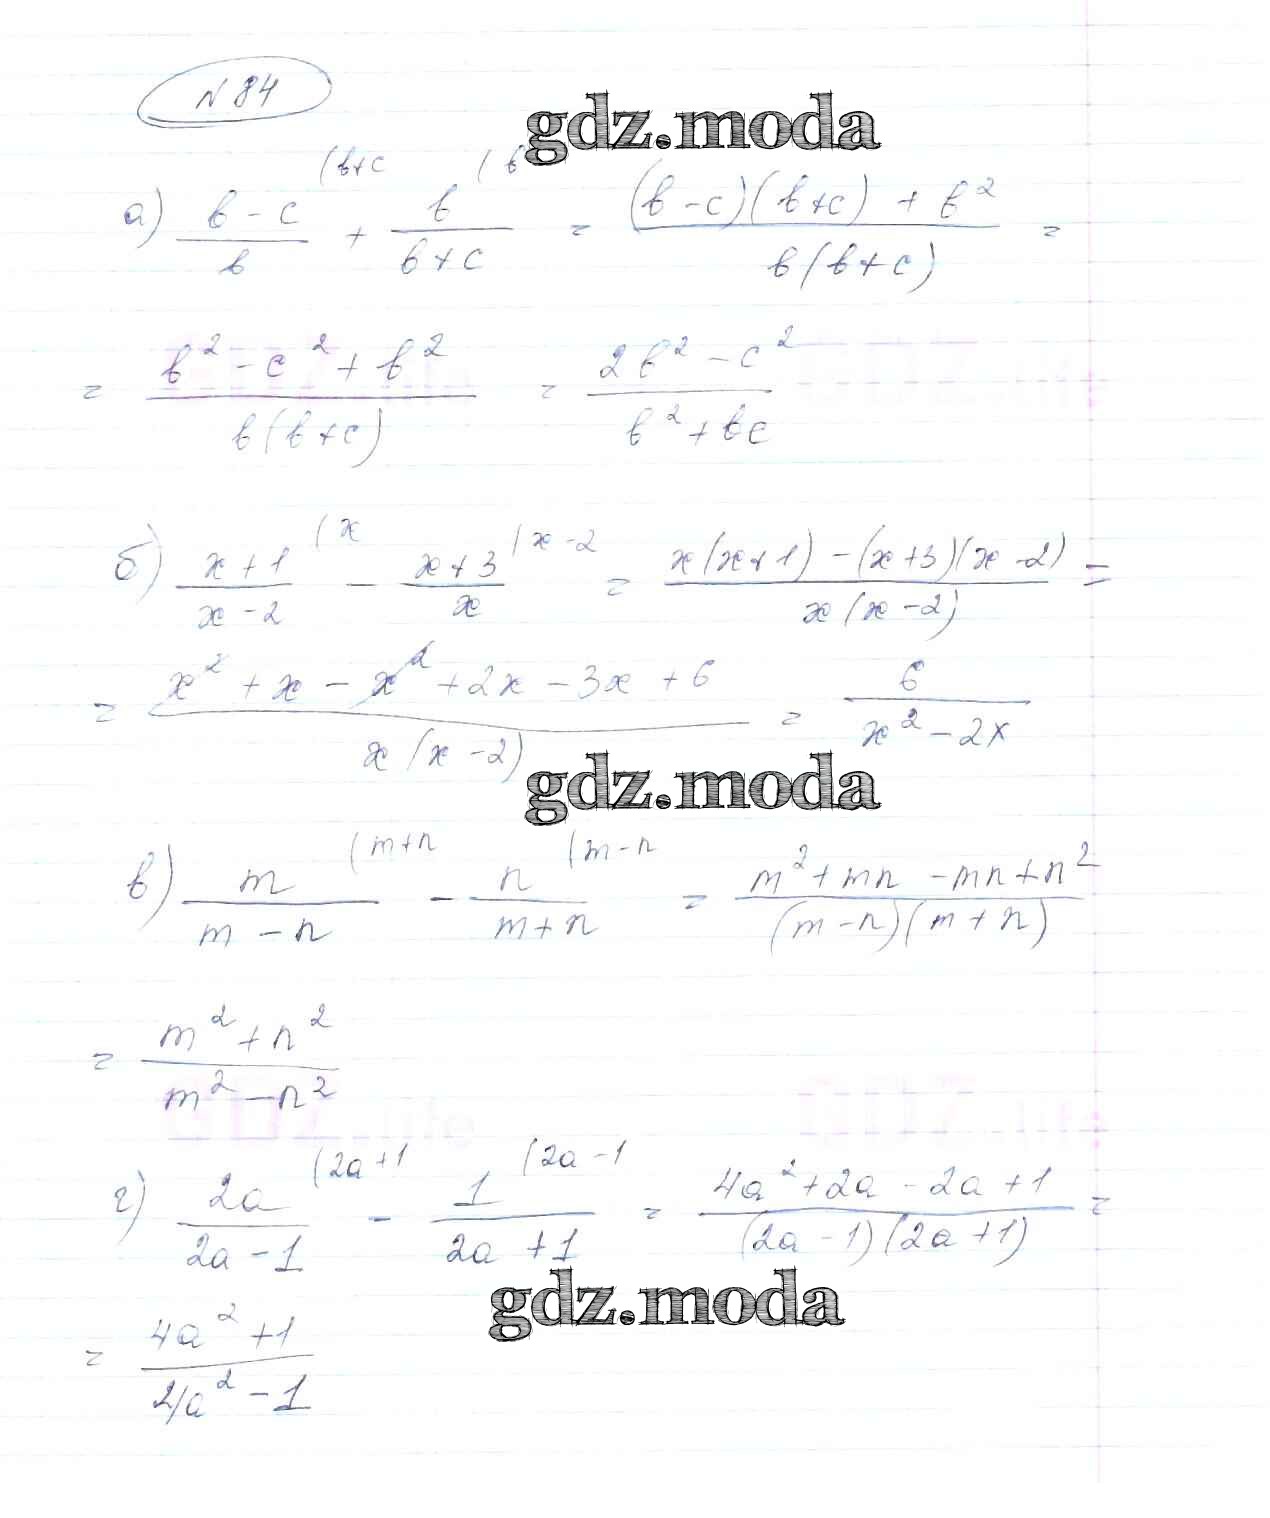 N 84
gdz.moda
а) (b-c)/b (b+c + b/(b+c) (b = ((b-c)(b+c) + b²)/(b(b+c)) =
= (b² - c² + b²)/(b(b+c)) = (2b² - c²)/(b² + bc)
б) (x+1)/(x-2) (x - (x+3)/x (x-2 = (x(x+1) - (x+3)(x-2))/(x(x-2)) =
= (x² + x - x² + 2x - 3x + 6)/(x(x-2)) = 6/(x² - 2x)
gdz.moda
в) m/(m-n) (m+n - n/(m+n) (m-n = (m² + mn - mn + n²)/((m-n)(m+n))
= (m² + n²)/(m² - n²)
г) 2a/(2a-1) (2a+1 - 1/(2a+1) (2a-1 = (4a² + 2a - 2a + 1)/((2a-1)(2a+1)) =
gdz.moda
= (4a² + 1)/(4a² - 1)